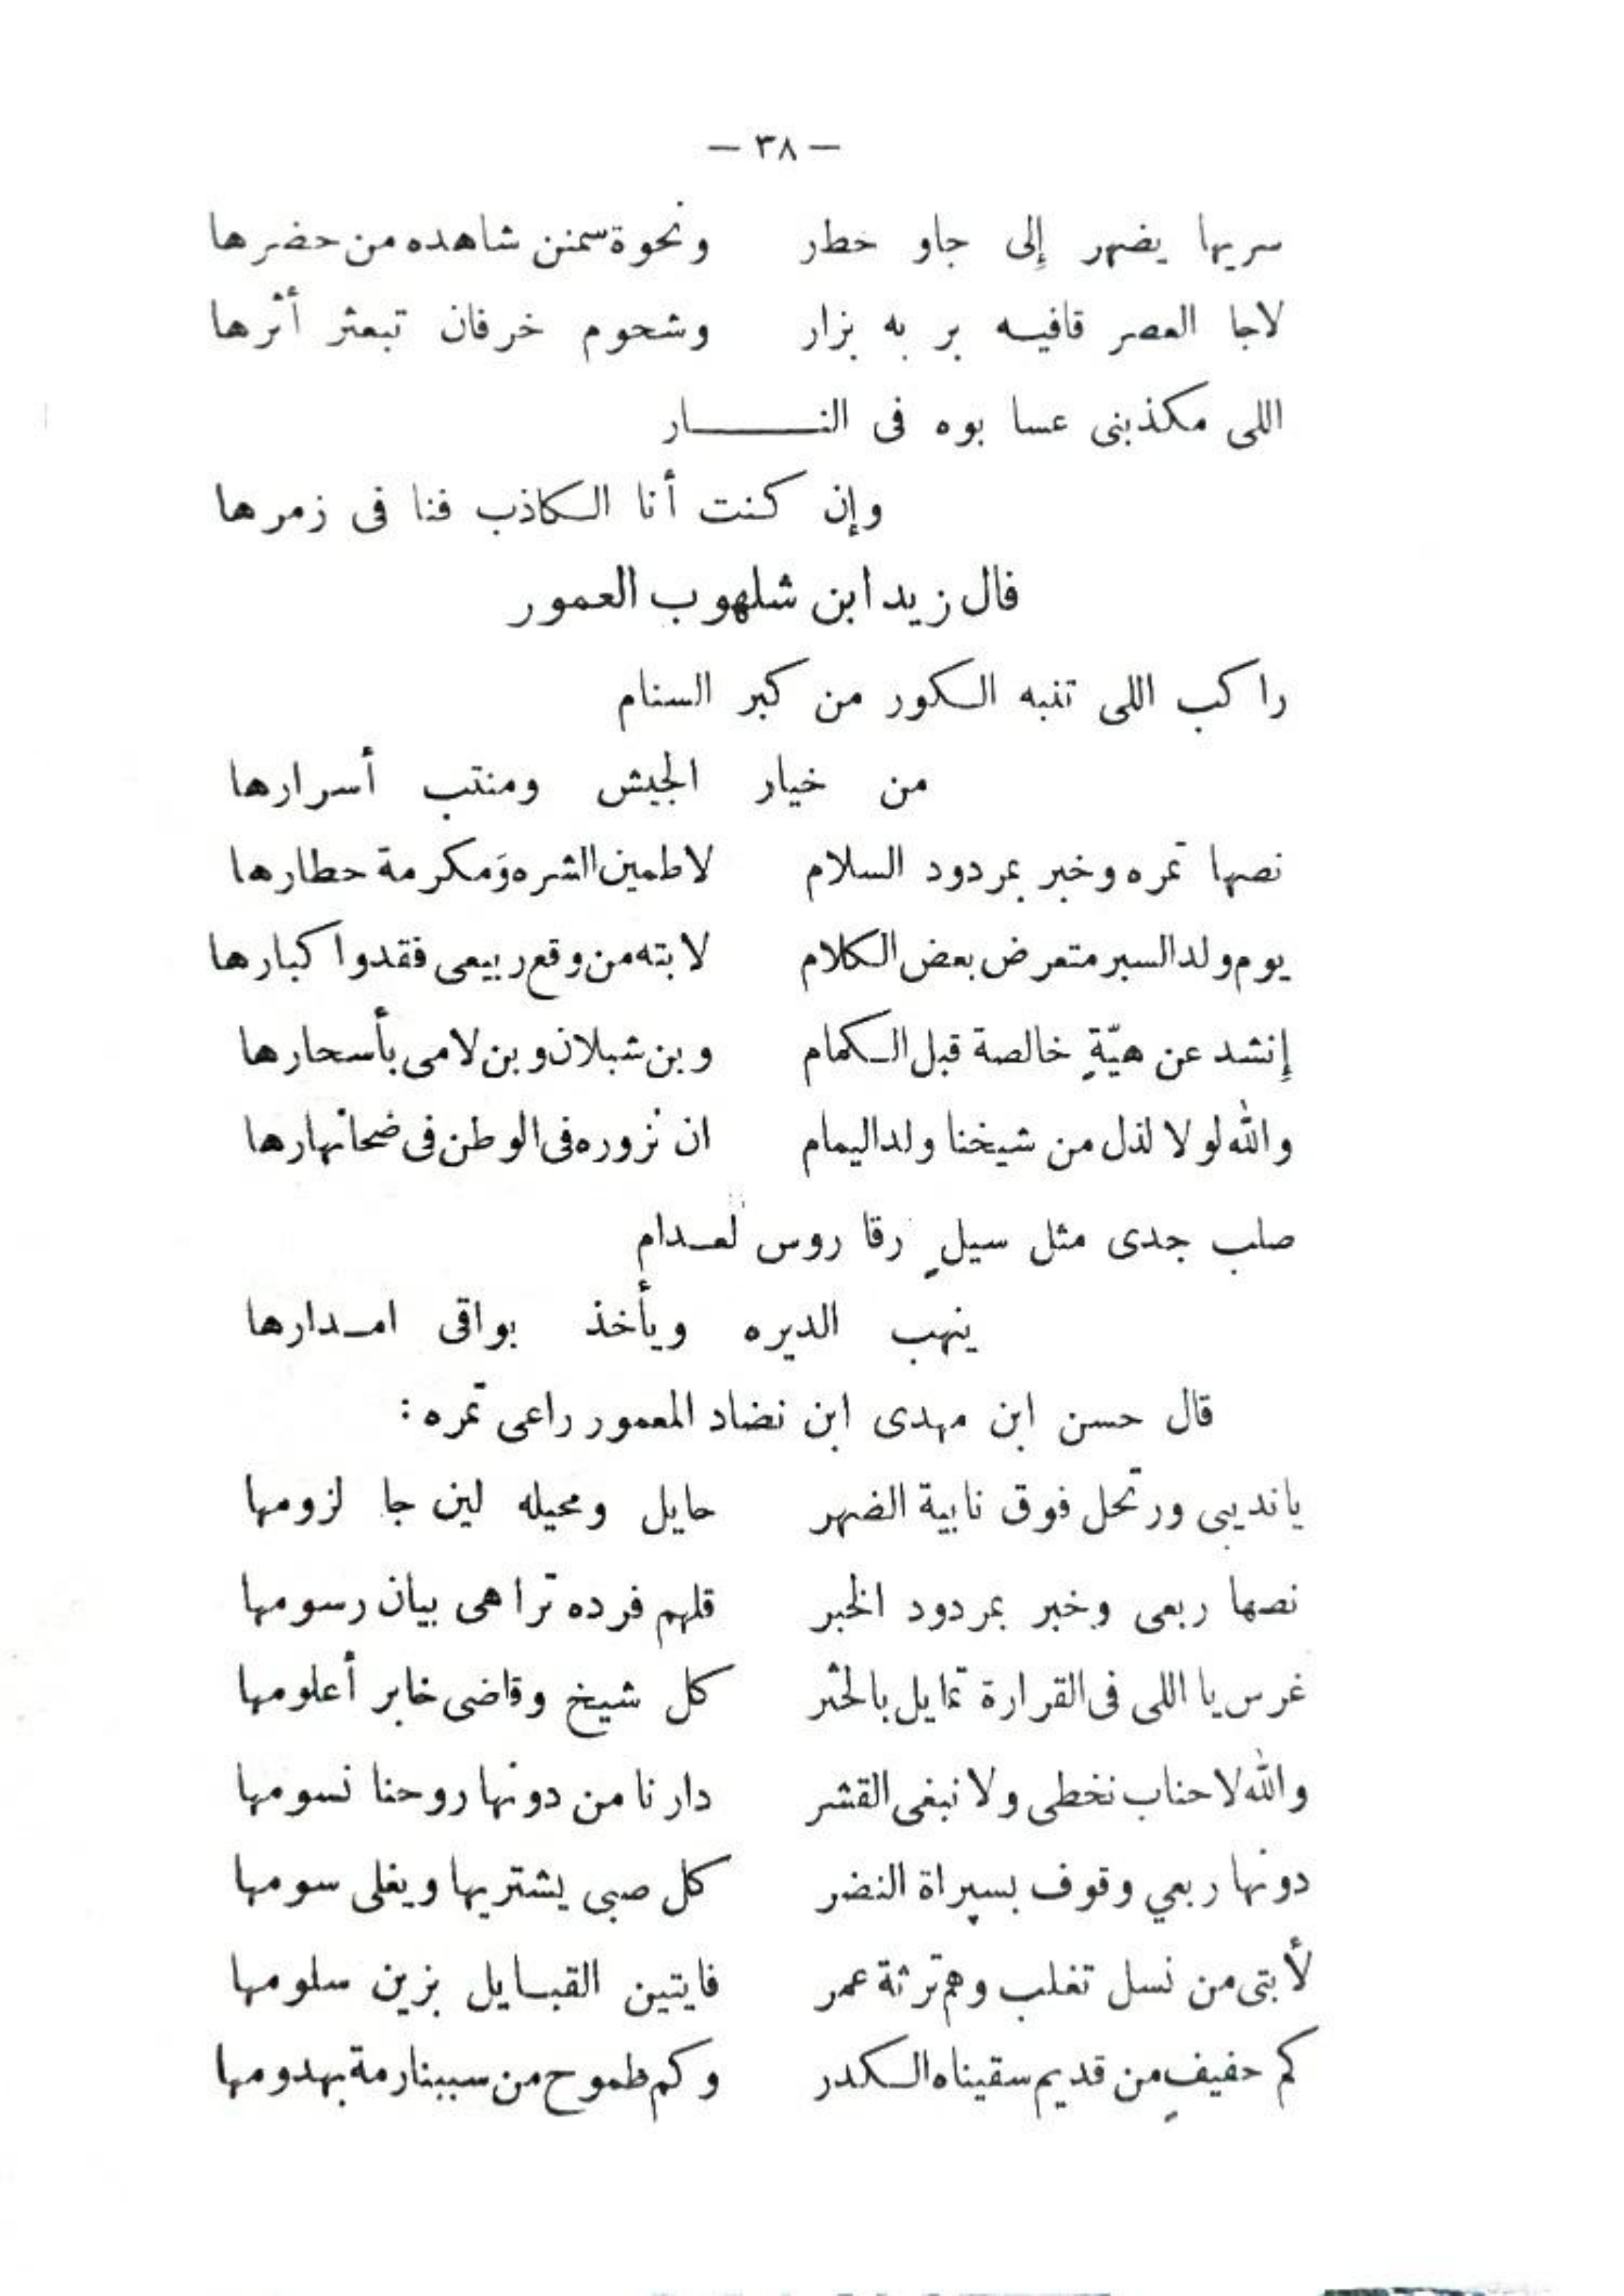 — ٣٨ —
سريها يضهر إلى جاو خطار ونحوة سمنن شاهده من حضرها
لاجا العصر قافيه بر به بزار وشحوم خرفان تبعثر أثرها
اللى مكذبنى عسا بوه فى النار
وإن كنت أنا الكاذب فنا فى زمرها
قال زيد ابن شلهوب العمور
راكب اللى تنبه الكور من كبر السنام
من خيار الجيش ومنتب أسرارها
نصها تمره وخبر بمردود السلام لاطمين الشره وَمكرمة حطارها
يوم ولد السبر متعرض بعض الكلام لابته من وقع ربيعى فقدوا كبارها
إنشد عن هيّةٍ خالصة قبل الكمام وبن شبلان وبن لامى بأسحارها
والله لولا لذل من شيخنا ولد اليمام ان نزوره فى الوطن فى ضحانهارها
صلب جدى مثل سيلٍ رقا روس لعدام
ينهب الديره ويأخذ بواقى امدارها
قال حسن ابن مهدى ابن نضاد المعمور راعى تمره :
يانديبى ورتحل فوق نابية الضهر حايل ومحيله لين جا لزومها
نصها ربعى وخبر بمردود الخبر قلهم فرده ترا هى بيان رسومها
غرس يا اللى فى القرارة تمايل بالحثر كل شيخ وقاضى خابر أعلومها
والله لا حناب نخطى ولا نبغى القشر دارنا من دونها روحنا نسومها
دونها ربعي وقوف بسيراة النضر كل صبى يشتريها ويغلى سومها
لأبتى من نسل تغلب وهم ترثة عمر فايتين القبايل بزين سلومها
كم حفيفٍ من قديم سقيناه الكدر وكم طموح من سببنا رمة بهدومها